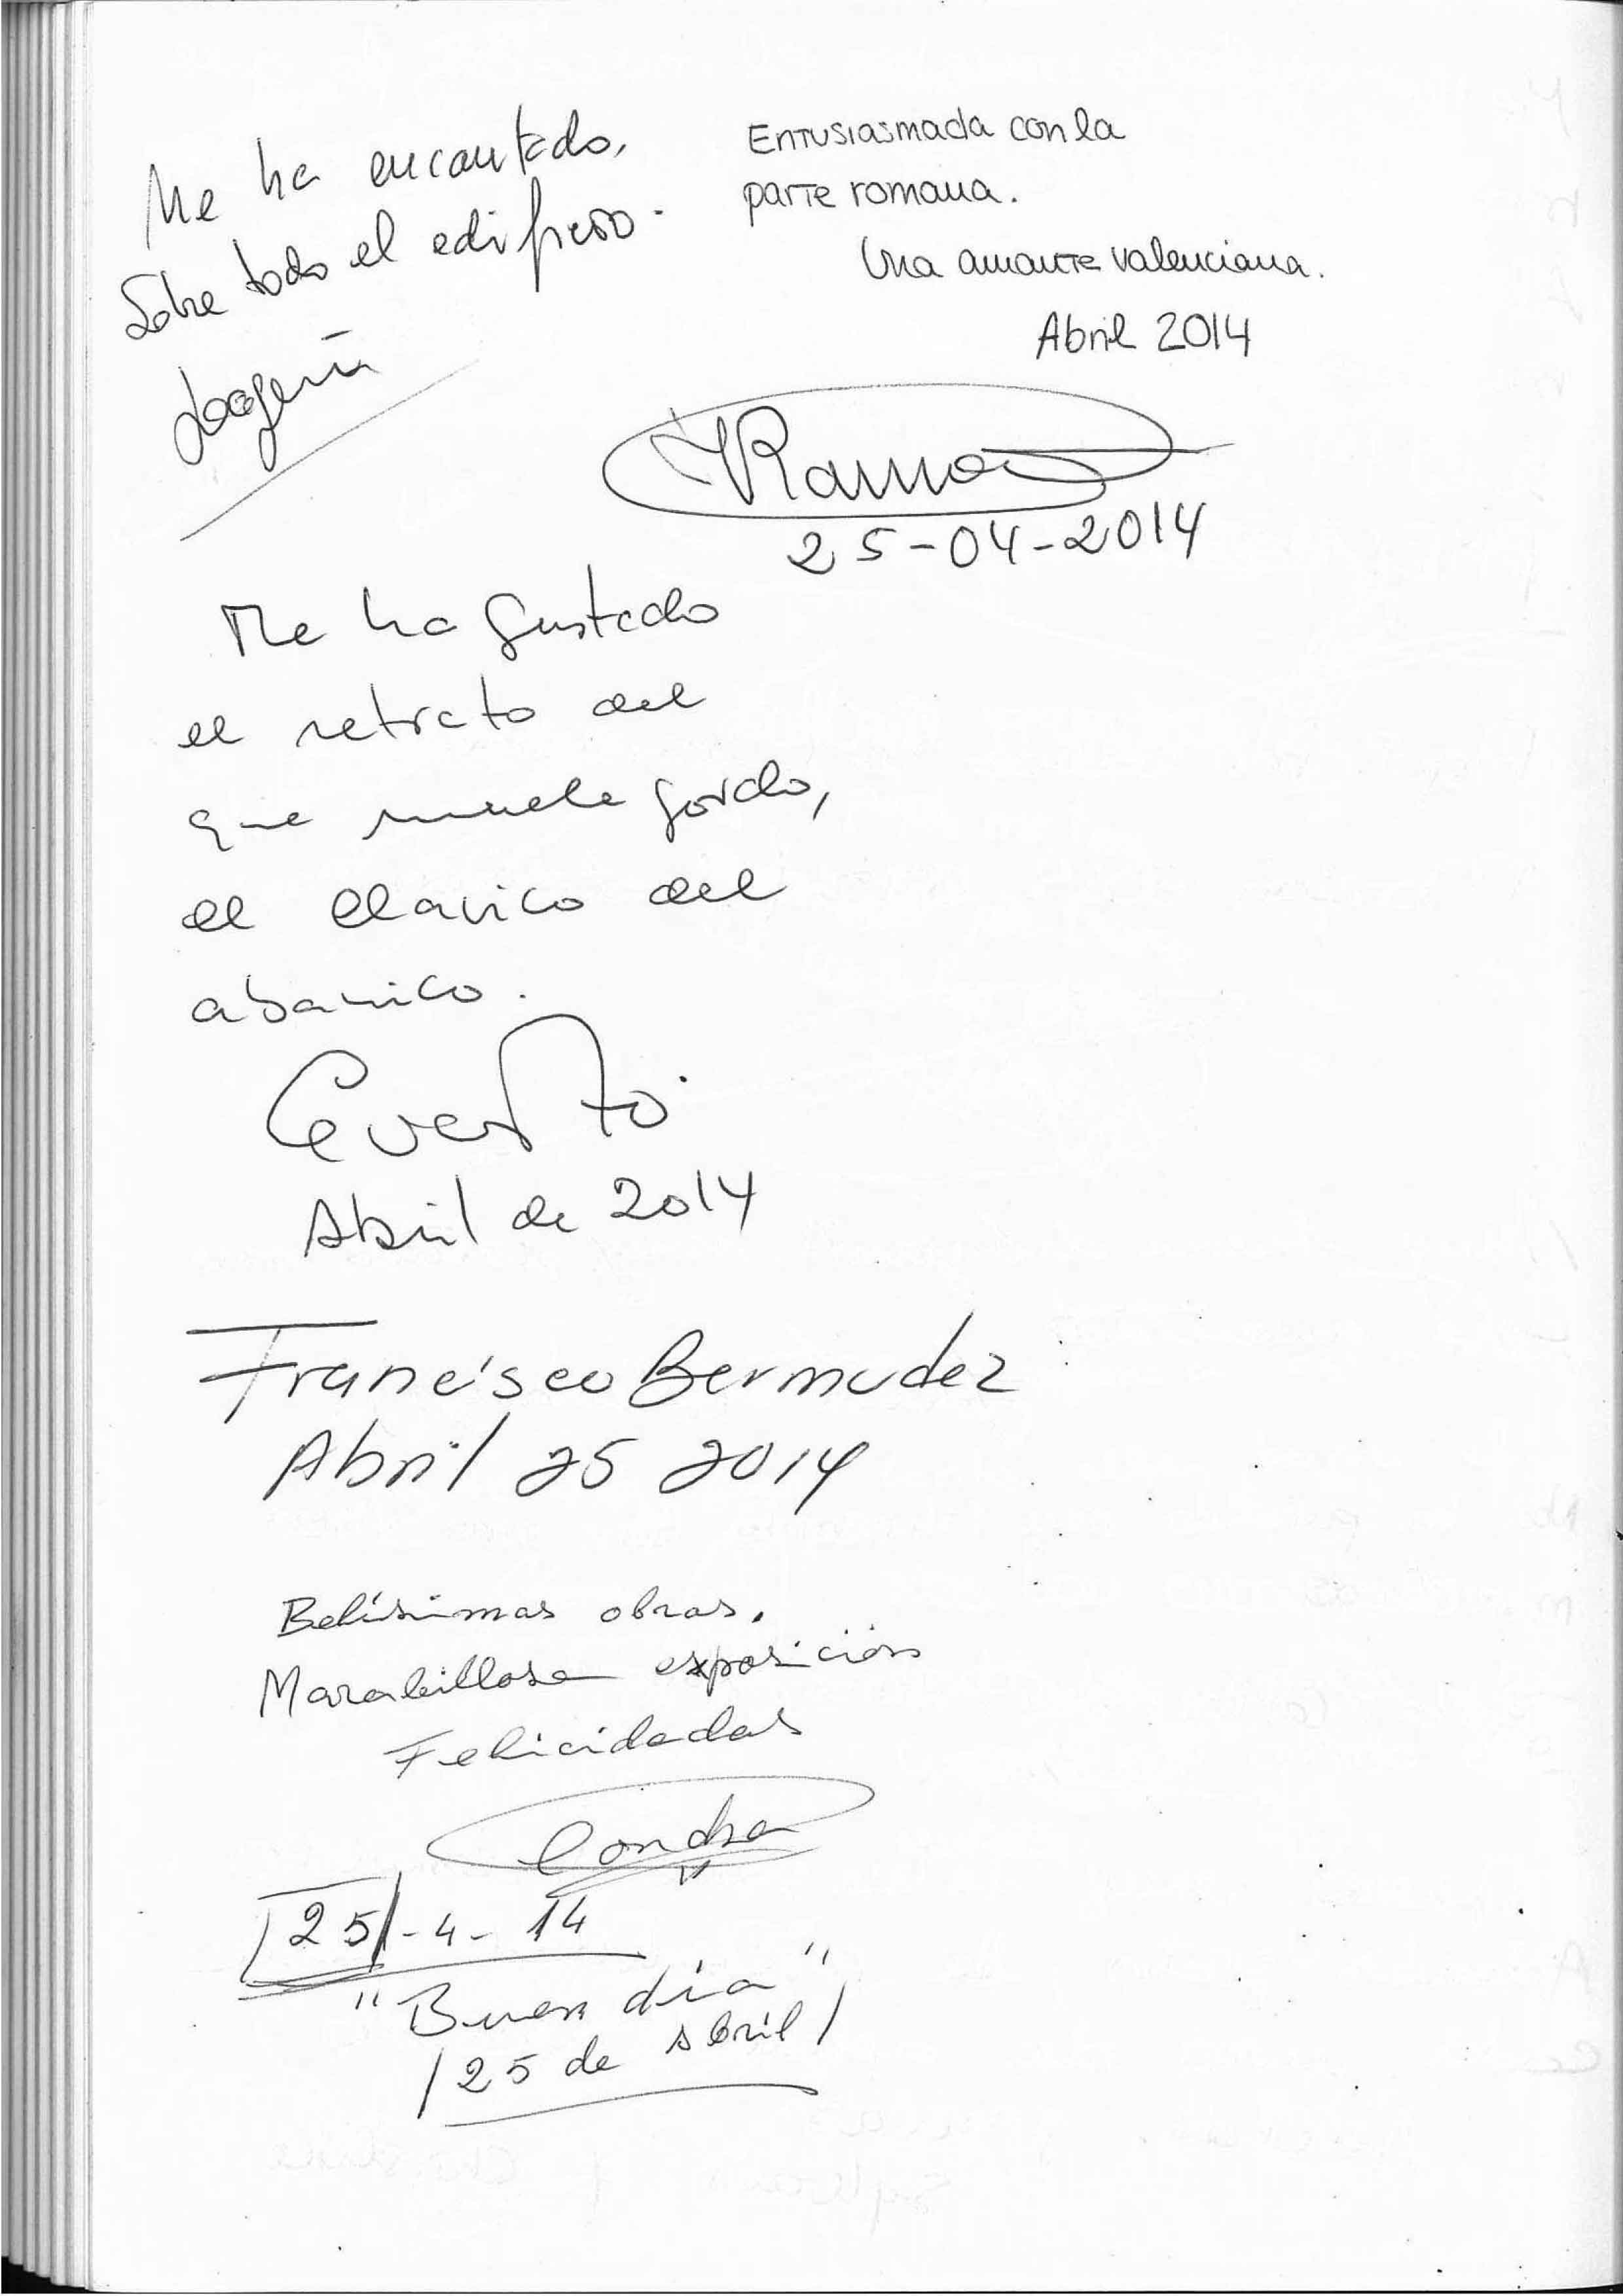 Me ha encantado,
Sobre todo el edificio.
Entusiasmada con la
parte romana.
Una amante valenciana.
Abril 2014
Ramos
25-04-2014
Me ha gustado
el retrato del
que muele gordo,
el clavico del
abanico.
Abril de 2014
Francisco Bermudez
Abril 25 2014
Belísimas obras.
Marabillosa exposición
Felicidades
25-4-14
"Buen día"
/25 de abril/